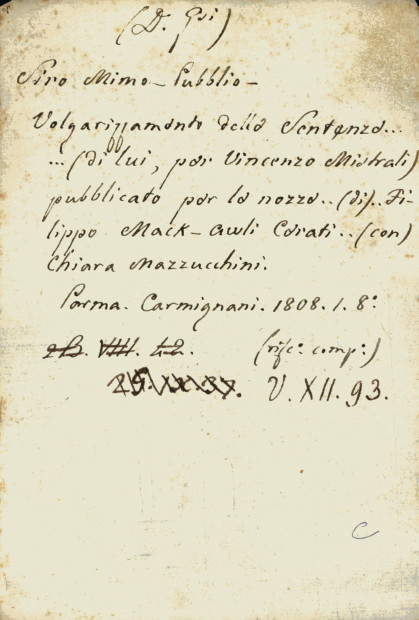 (D. Gsi)
Siro Mimo - Pubblio -
Volgarizzamento delle Sentenze...
... (di lui, per Vincenzo Mistrali)
pubblicato per le nozze.. (di).. Fi-
lippo Mack-Awli Cerati.. (con)
Chiara Mazzucchini.
Parma. Carmignani. 1808. 1. 8°.
VIII. 42. (risc: comp:)
V. XII. 93.
C